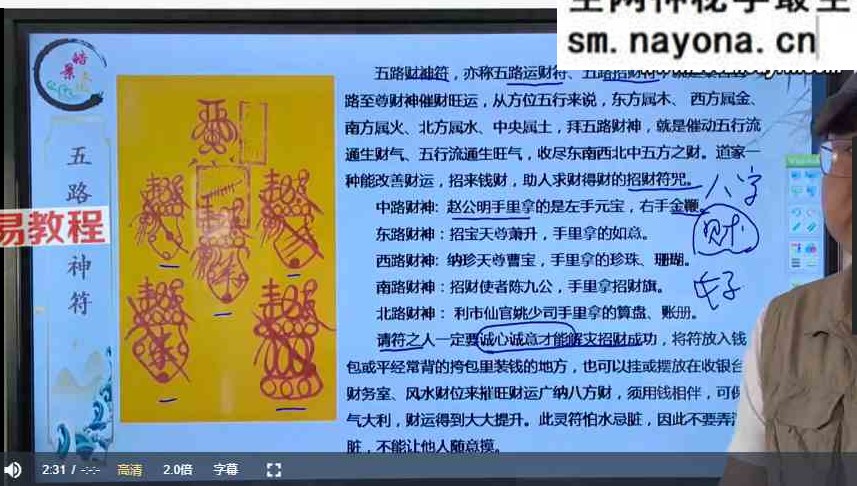 sm.nayona.cn
皓
景
五
路
神
符
易教程
五路财神符，亦称五路运财符、五路招财符
路至尊财神催财旺运，从方位五行来说，东方属木、 西方属金、
南方属火、北方属水、中央属土，拜五路财神，就是催动五行流
通生财气、五行流通生旺气，收尽东南西北中五方之财。道家一
种能改善财运，招来钱财，助人求财得财的招财符咒。
八字
中路财神：赵公明手里拿的是左手元宝，右手金鞭。
财
东路财神：招宝天尊萧升，手里拿的如意。
西路财神: 纳珍天尊曹宝，手里拿的珍珠、珊瑚。
南路财神：招财使者陈九公，手里拿招财旗。
北路财神： 利市仙官姚少司手里拿的算盘、账册。
请符之人一定要诚心诚意才能解灾招财成功，将符放入钱
包或平经常背的挎包里装钱的地方，也可以挂或摆放在收银台
财务室、风水财位来摧旺财运广纳八方财，须用钱相伴，可保
气大利，财运得到大大提升。此灵符怕水忌脏，因此不要弄
脏，不能让他人随意摸。
2:31 / -:-:- 高清 2.0倍 字幕